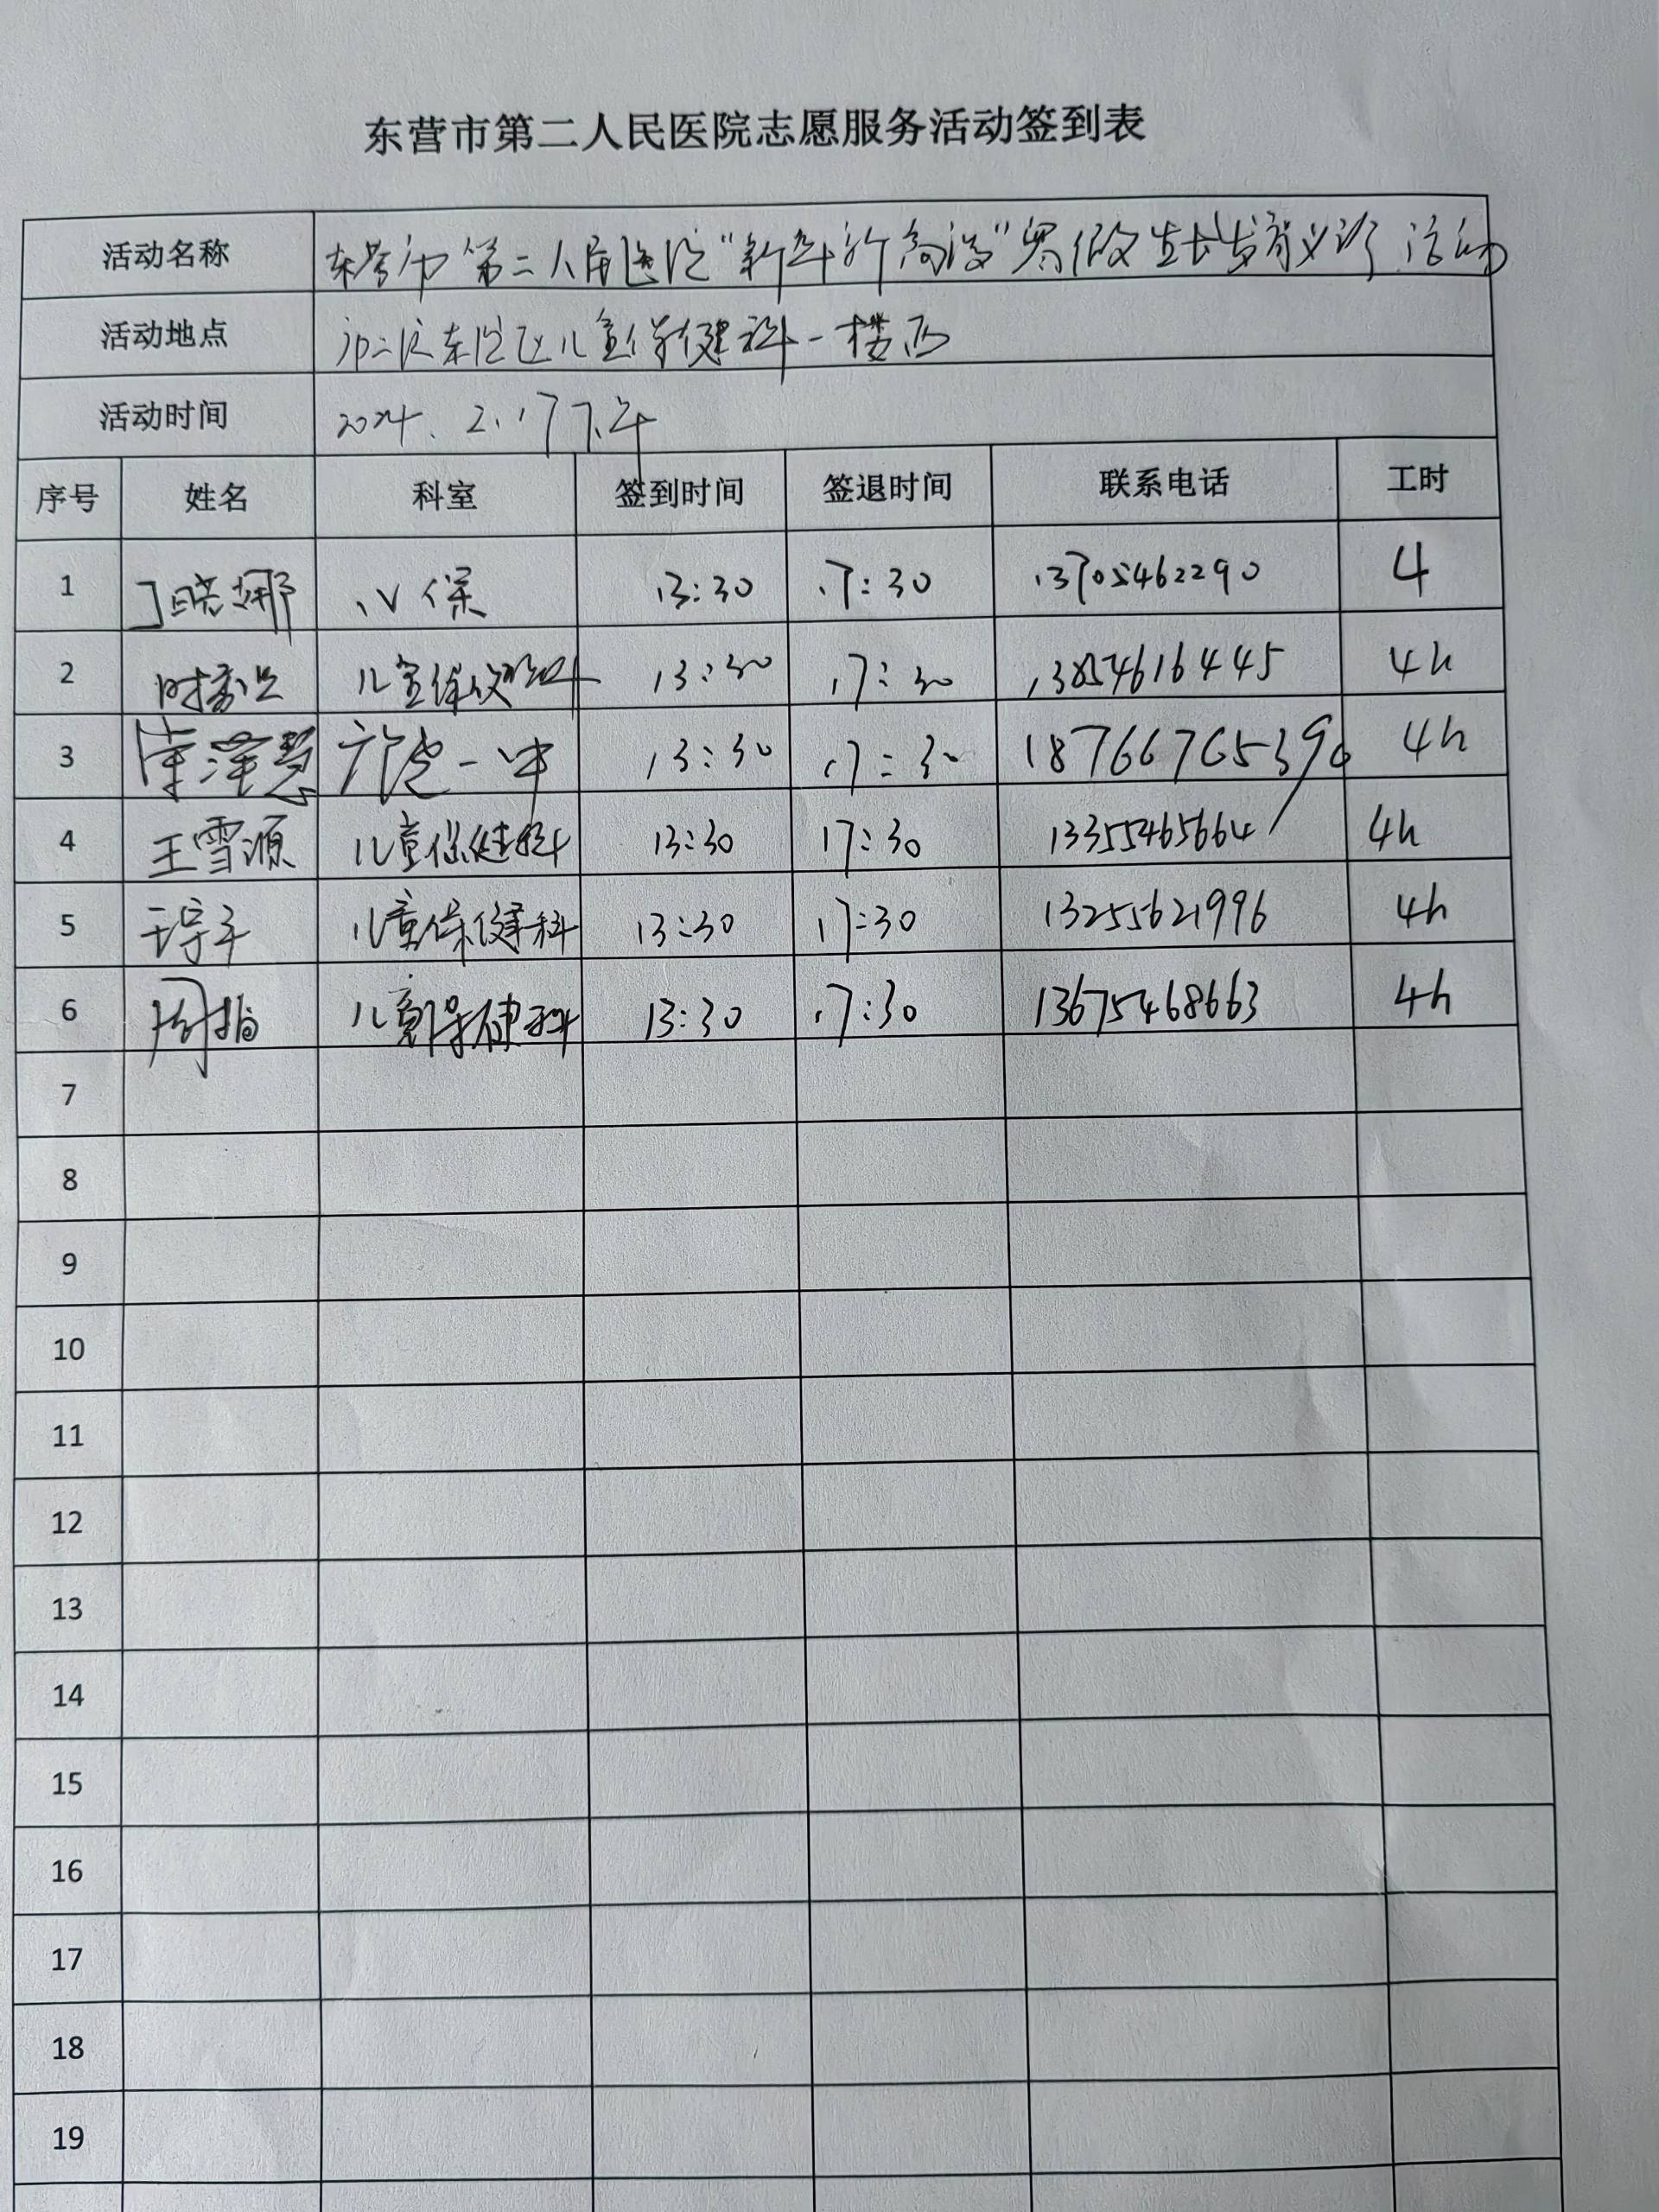 东营市第二人民医院志愿服务活动签到表
活动名称 东营市第二人民医院“新年新高度”寒假生长发育义诊活动
活动地点 市二院东院区儿童保健科一楼西
活动时间 2024.2.17下午
序号 姓名 科室 签到时间 签退时间 联系电话 工时
1 儿保 13:30 17:30 13705462290 4
2 儿童保健科 13:30 17:30 13854616445 4h
3 一中 13:30 17:30 18766765396 4h
4 王雪源 儿童保健科 13:30 17:30 13355465664 4h
5 儿童保健科 13:30 17:30 13255621996 4h
6 儿童保健科 13:30 17:30 13675468663 4h
7
8
9
10
11
12
13
14
15
16
17
18
19